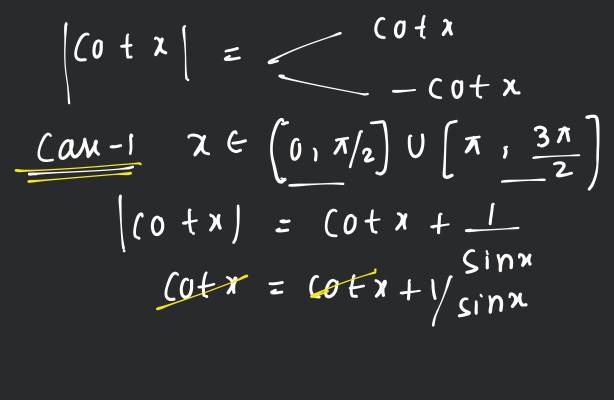 |cot x| = cot x
- cot x
Case-1 x ∈ (0, π/2] ∪ [π, 3π/2]
|cot x| = cot x + 1/sinx
cot x = cot x + 1/sinx